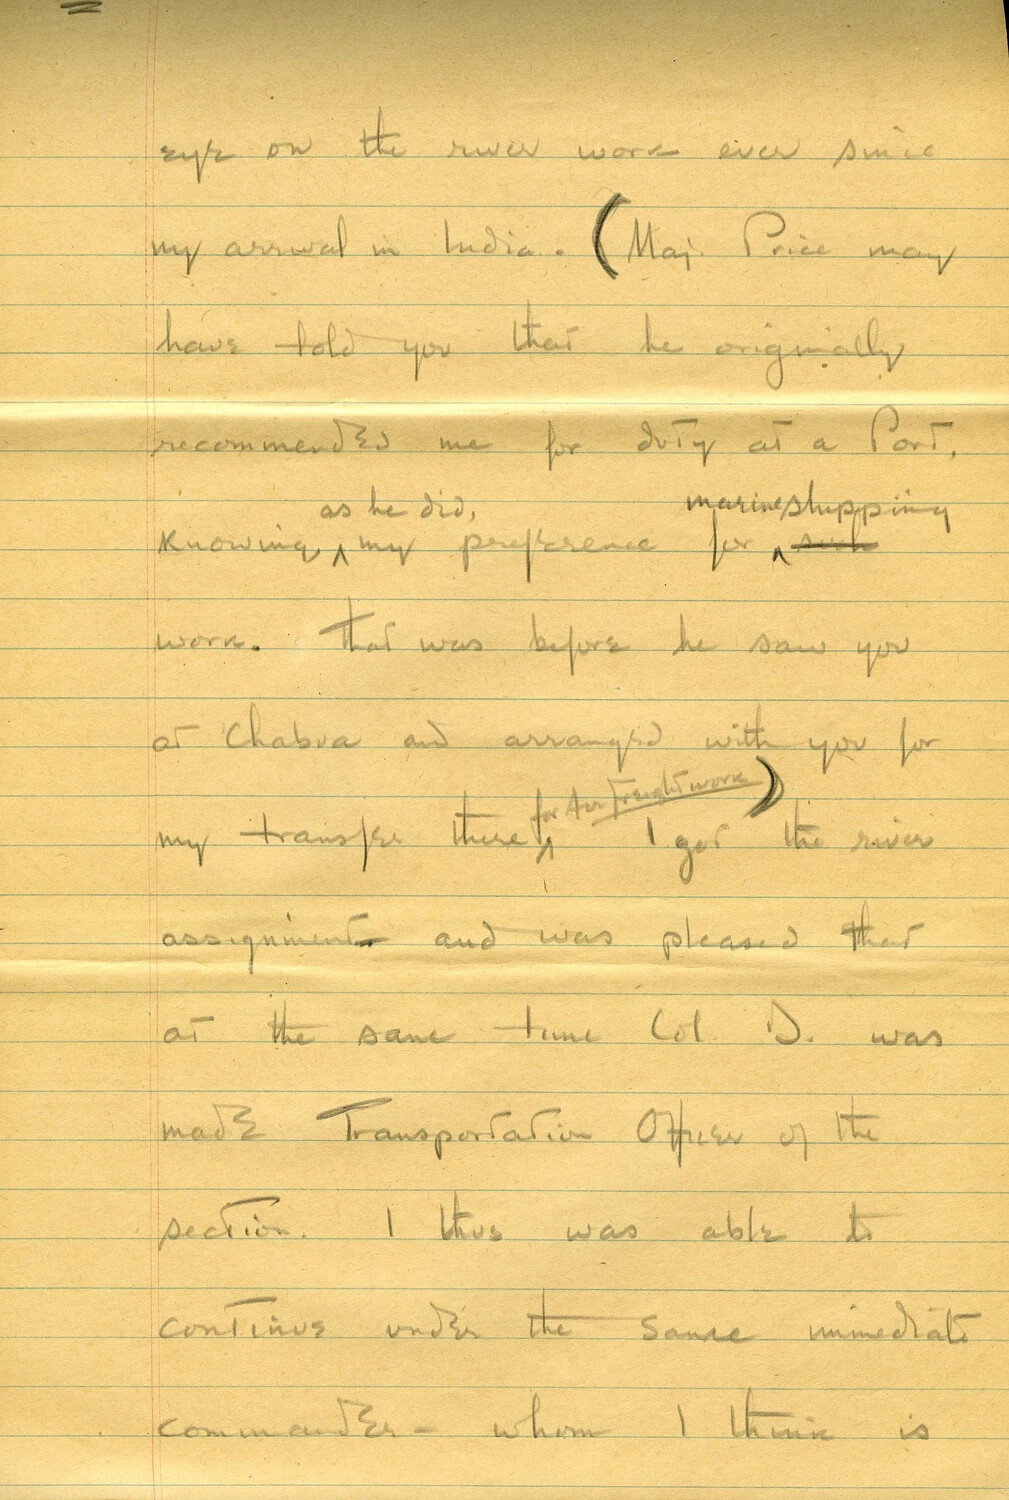 eye on the river work ever since
my arrival in India. (Maj. Price may
have told you that he originally
recommended me for duty at a Port,
as he did, marine shipping
knowing, ^ my preference for ^ such
work. That was before he saw you
at Chabua and arranged with you for
for Air Freight work)
my transfer there ^ I got the river
assignment and was pleased that
at the same time Col. D. was
made Transportation Officer of the
section. I thus was able to
continue under the same immediate
commander - whom I think is